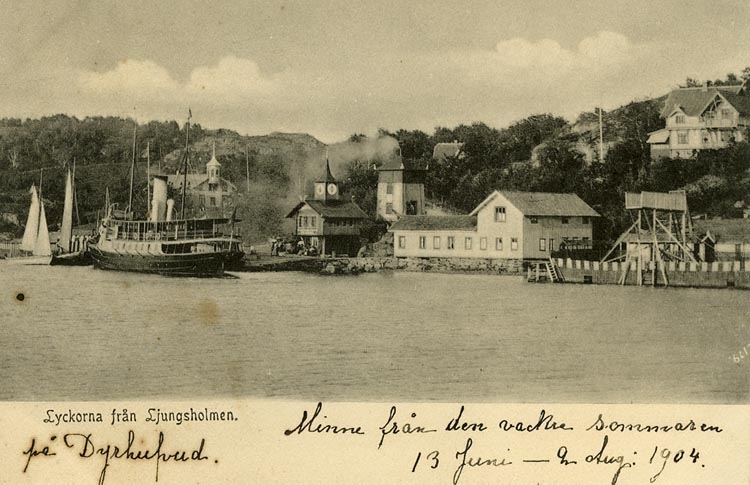 Lyckorna från Ljungsholmen.
på Dyrhufvud.
Minne från den vackre sommaren
13 Juni — 2 Aug: 1904.